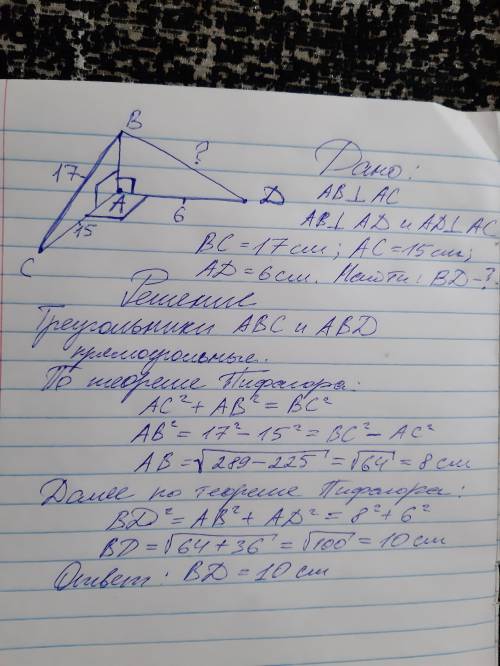 B
17
?
A
6
D
15
C
Дано:
AB⊥AC
AB⊥AD и AD⊥AC
BC=17см; AC=15см;
AD=6см. Найти: BD-?
Решение
Треугольники ABC и ABD
прямоугольные.
По теореме Пифагора:
AC²+AB²=BC²
AB²=17²-15²=BC²-AC²
AB=√289-225=√64=8см
Далее по теореме Пифагора:
BD²=AB²+AD²=8²+6²
BD=√64+36=√100=10см
Ответ: BD=10см